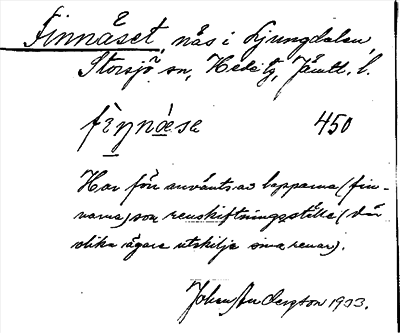 Finnåset, nås i Ljungdalen,
Storsjö sn, Hede tg, Jämtl. l.
fìnnå̀sa 450
Har förr använts av lapparna (fin-
narna) som renskiftningsställe (där
olika ägare utskilja sina renar).
Johan Anderson 1933.